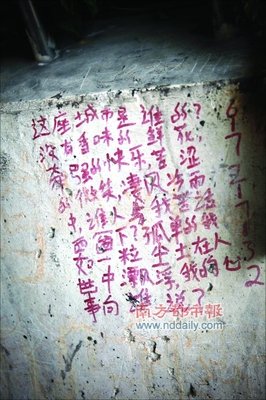 这座城市是谁的?
没有香味的鲜花,
的快乐,苦涩
的微笑,凄风冷雨
谁人
孤单的我
如一粒尘土在人
世中飘浮,我的心
事向谁说?
南方都市报
www.nddaily.com